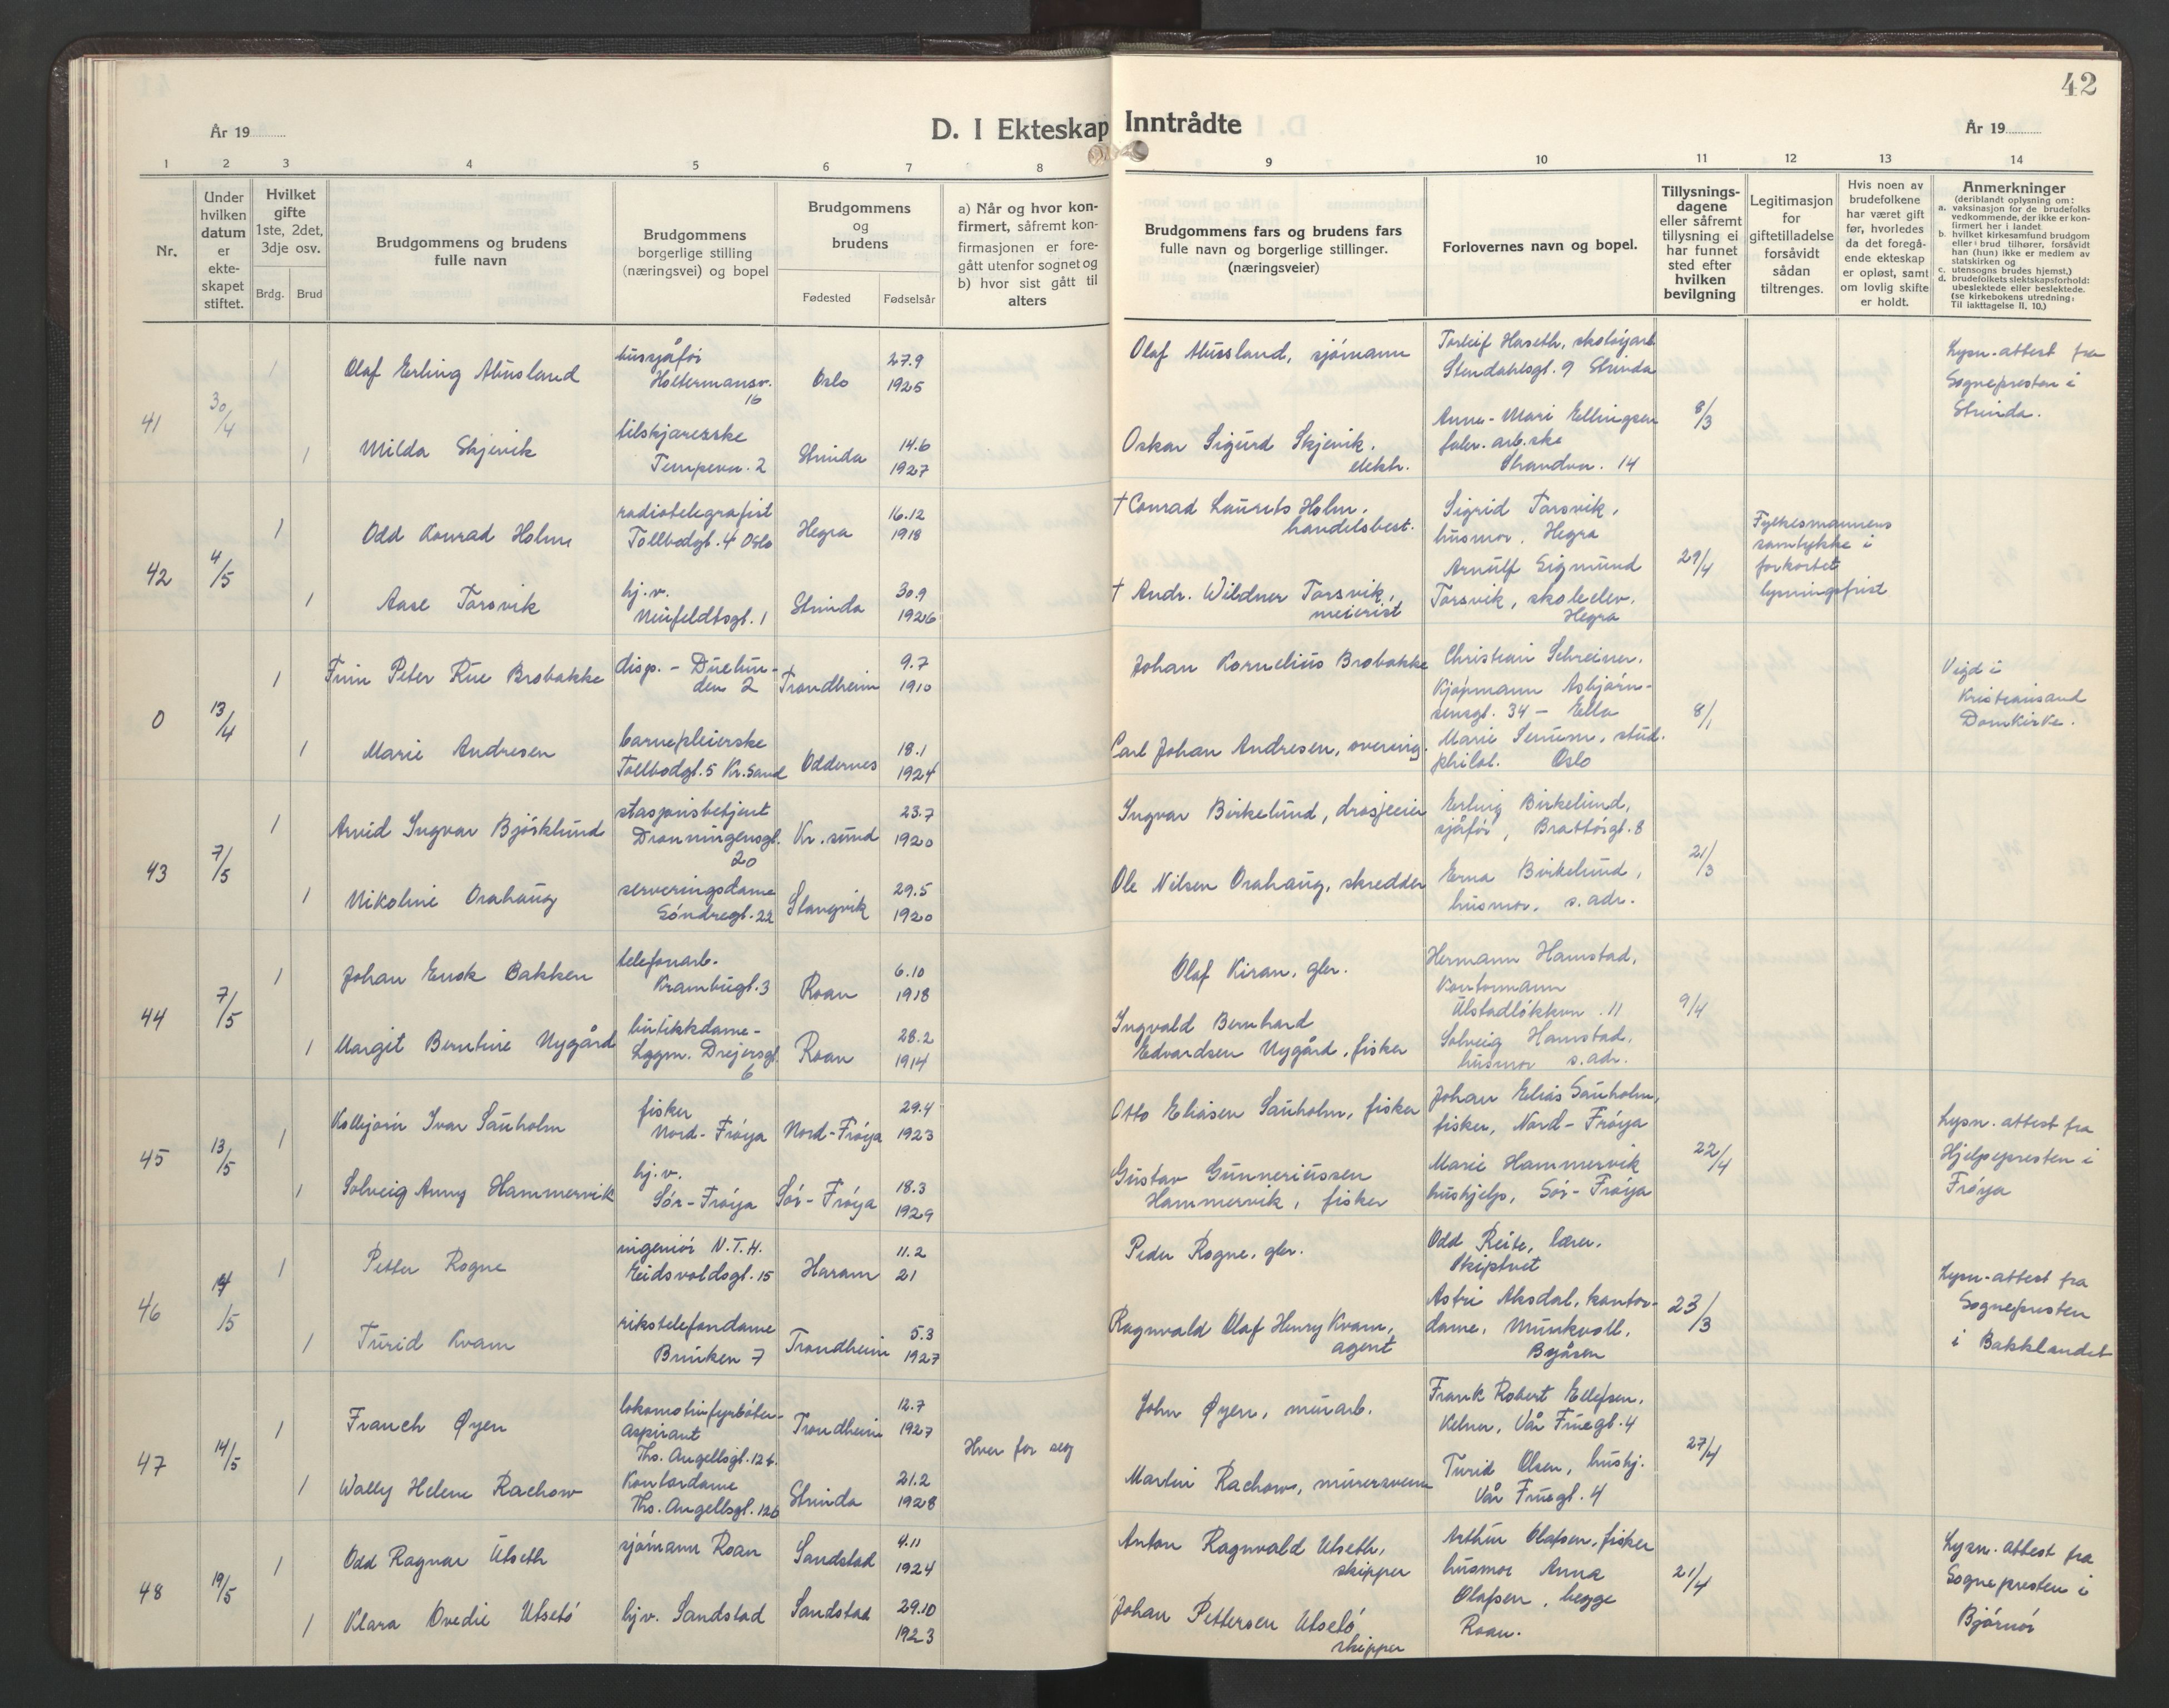 42
År 19
D. I Ekteskap Inntrådte
År 19
1 2 3 4 5 6 7 8 9 10 11 12 13 14
Nr.
Under
hvilken
datum
er
ekte-
skapet
stiftet.
Hvilket
gifte
1ste, 2det,
3dje osv.
Brdg. Brud
Brudgommens og brudens
fulle navn
Brudgommens
borgerlige stilling
(næringsvei) og bopel
Brudgommens
og
brudens
Fødested Fødselsår
a) Når og hvor kon-
firmert, såfremt kon-
firmasjonen er fore-
gått utenfor sognet og
b) hvor sist gått til
alters
Brudgommens fars og brudens fars
fulle navn og borgerlige stillinger.
(næringsveier)
Forlovernes navn og bopel.
Tillysnings-
dagene
eller såfremt
tillysning ei
har funnet
sted efter
hvilken
bevilgning
Legitimasjon
for
giftetilladelse
forsåvidt
sådan
tiltrenges.
Hvis noen av
brudefolkene
har været gift
før, hvorledes
da det foregå-
ende ekteskap
er opløst, samt
om lovlig skifte
er holdt.
Anmerkninger
(deriblandt oplysning om:
a. vaksinasjon for de brudefolks
vedkommende, der ikke er kon-
firmert her i landet
b. hvilket kirkesamfund brudgom
eller brud tilhører, forsåvidt
han (hun) ikke er medlem av
statskirken og
c. utensogns brudes hjemst.)
d. brudefolkets slektskapsforhold:
ubeslektede eller beslektede.
(se kirkebokens utredning:
Til iakttagelse II, 10.)
41
30/4
1
Olaf Erling Aﾠusland
bussjåfør
Holtermansv.
16
Oslo
27.9
1925
Olaf Aussland, sjömann
Torleif Haseth, skotöjarb.
Stendahlsgt. 9 Strinda
8/3
Lysn.attest fra
Sognepresten i
Strinda.
1
Milda Skjevik
tilskjærerske
Tempevn. 2
Strinda
14.6
1927
Oskar Sigurd Skjevik,
elektr.
Anne-Mari Ellingsen
faler. arb.ske
Strandvn. 14
42
4/5
1
Odd Konrad Holm
radiotelegrafist
Tollbodgt. 4 Oslo
Hegra
16.12
1918
† Conrad Laurits Holm,
handelsbest.
Sigrid Torsvik,
husmor, Hegra
29/4
Fylkesmannens
samtykke i
forkortet
lysningsfrist
1
Aase Torsvik
hj.v.
Neufeldtsgt. 1
Strinda
30.9
1926
† Andr. Wildner Torsvik,
meierist
Arnulf Sigmund
Torsvik, skoleelev,
Hegra
0
13/4
1
Finn Peter Rue Brobakke
disp. - Duelun-
den 2
Trondheim
9.7
1910
Johan Kornelius Brobakke
Christian Schreiner,
Kjöpmann Asbjörn-
sensgt. 34 - Ella
8/1
Vigd i
Kristiansand
Domkirke.
1
Marie Andresen
barnepleierske
Tollbodgt. 5 Kr.sand
Oddernes
18.1
1924
Carl Johan Andresen, overing.
Marie Serum, stud.
philol. Oslo
43
7/5
1
Arvid Ingvar Björklund
stasjonsbetjent
Dronningensgt.
20
Kr.sund
23.7
1920
Ingvar Birkelund, drosjeeier
Erling Birkelund,
sjåför, Brattörgt. 8
21/3
1
Nikoline Orahaug
serveringsdame
Söndregt. 22
Stangvik
29.5
1920
Ole Nilsen Orahaug, skredder
Erna Birkelund,
husmor, s.adr.
44
7/5
1
Johan Enok Bakken
telefonarb.
Krambugt. 3
Roan
6.10
1918
Olaf Kiran, gbr.
Hermann Hamstad,
Kontormann
Ulstadlökkvn. 11
9/4
1
Margit Berntine Nygård
butikkdame-
Lggm. Drejersgt.
6
Roan
28.2
1914
Ingvald Bernhard
Edvardsen Nygård, fisker
Solveig Hamstad,
husmor s.adr.
45
13/5
1
Kolbjörn Ivar Sauholm
fisker
Nord-Fröya
Nord-Fröya
29.4
1923
Otto Eliasen Sauholm, fisker
Johan Elias Sauholm,
fisker, Nord-Fröya
22/4
Lysn.attest fra
Hjelpepresten i
Fröya
1
Solveig Anny Hammervik
hj.v.
Sör-Fröya
Sör-Fröya
18.3
1929
Gustav Gunneriussen
Hammervik, fisker
Marie Hammervik
hushjelp, Sör-Fröya
46
14/5
1
Petter Rogne
ingeniör N.T.H.
Eidsvoldsgt. 15
Haram
11.2
21
Peder Rogne, gbr.
Odd Reite, lærer,
Skiptvet
23/3
Lysn-attest fra
Sognepresten
i Bakklandet
1
Turid Kvam
rikstelefondame
Brinken 7
Trondheim
5.3
1927
Ragnvald Olaf Henry Kvam,
agent
Astri Aksdal, kontor-
dame, Munkvoll,
Byåsen
47
14/5
1
Franch Øyen
lokomotivfyrböter-
aspirant
Ths. Angellsgt. 12b.
Trondheim
12.7
1927
Hver for seg
John Øyen, murarb.
Frank Robert Ellefsen,
Kelner, Vår Fruegt. 4
27/4
1
Wally Helene Rachow
Kontordame
Ths. Angellsgt. 12b
Strinda
21.2
1928
Martin Rachow, murersvenn
Turid Olsen, hushj.
Vår Fruegt. 4
48
19/5
1
Odd Ragnar Utseth
sjömann Roan
Sandstad
4.11
1924
Anton Ragnvald Utseth,
skipper
Arthur Olafsen, fisker
husmor Anna
Olafsen, begge
Roan.
21/4
Lysn.attest fra
Sognepresten i
Björnör
1
Klara Ovedie Utsetö
hjv. Sandstad
Sandstad
29.10
1923
Johan Pettersen Utsetö
skipper